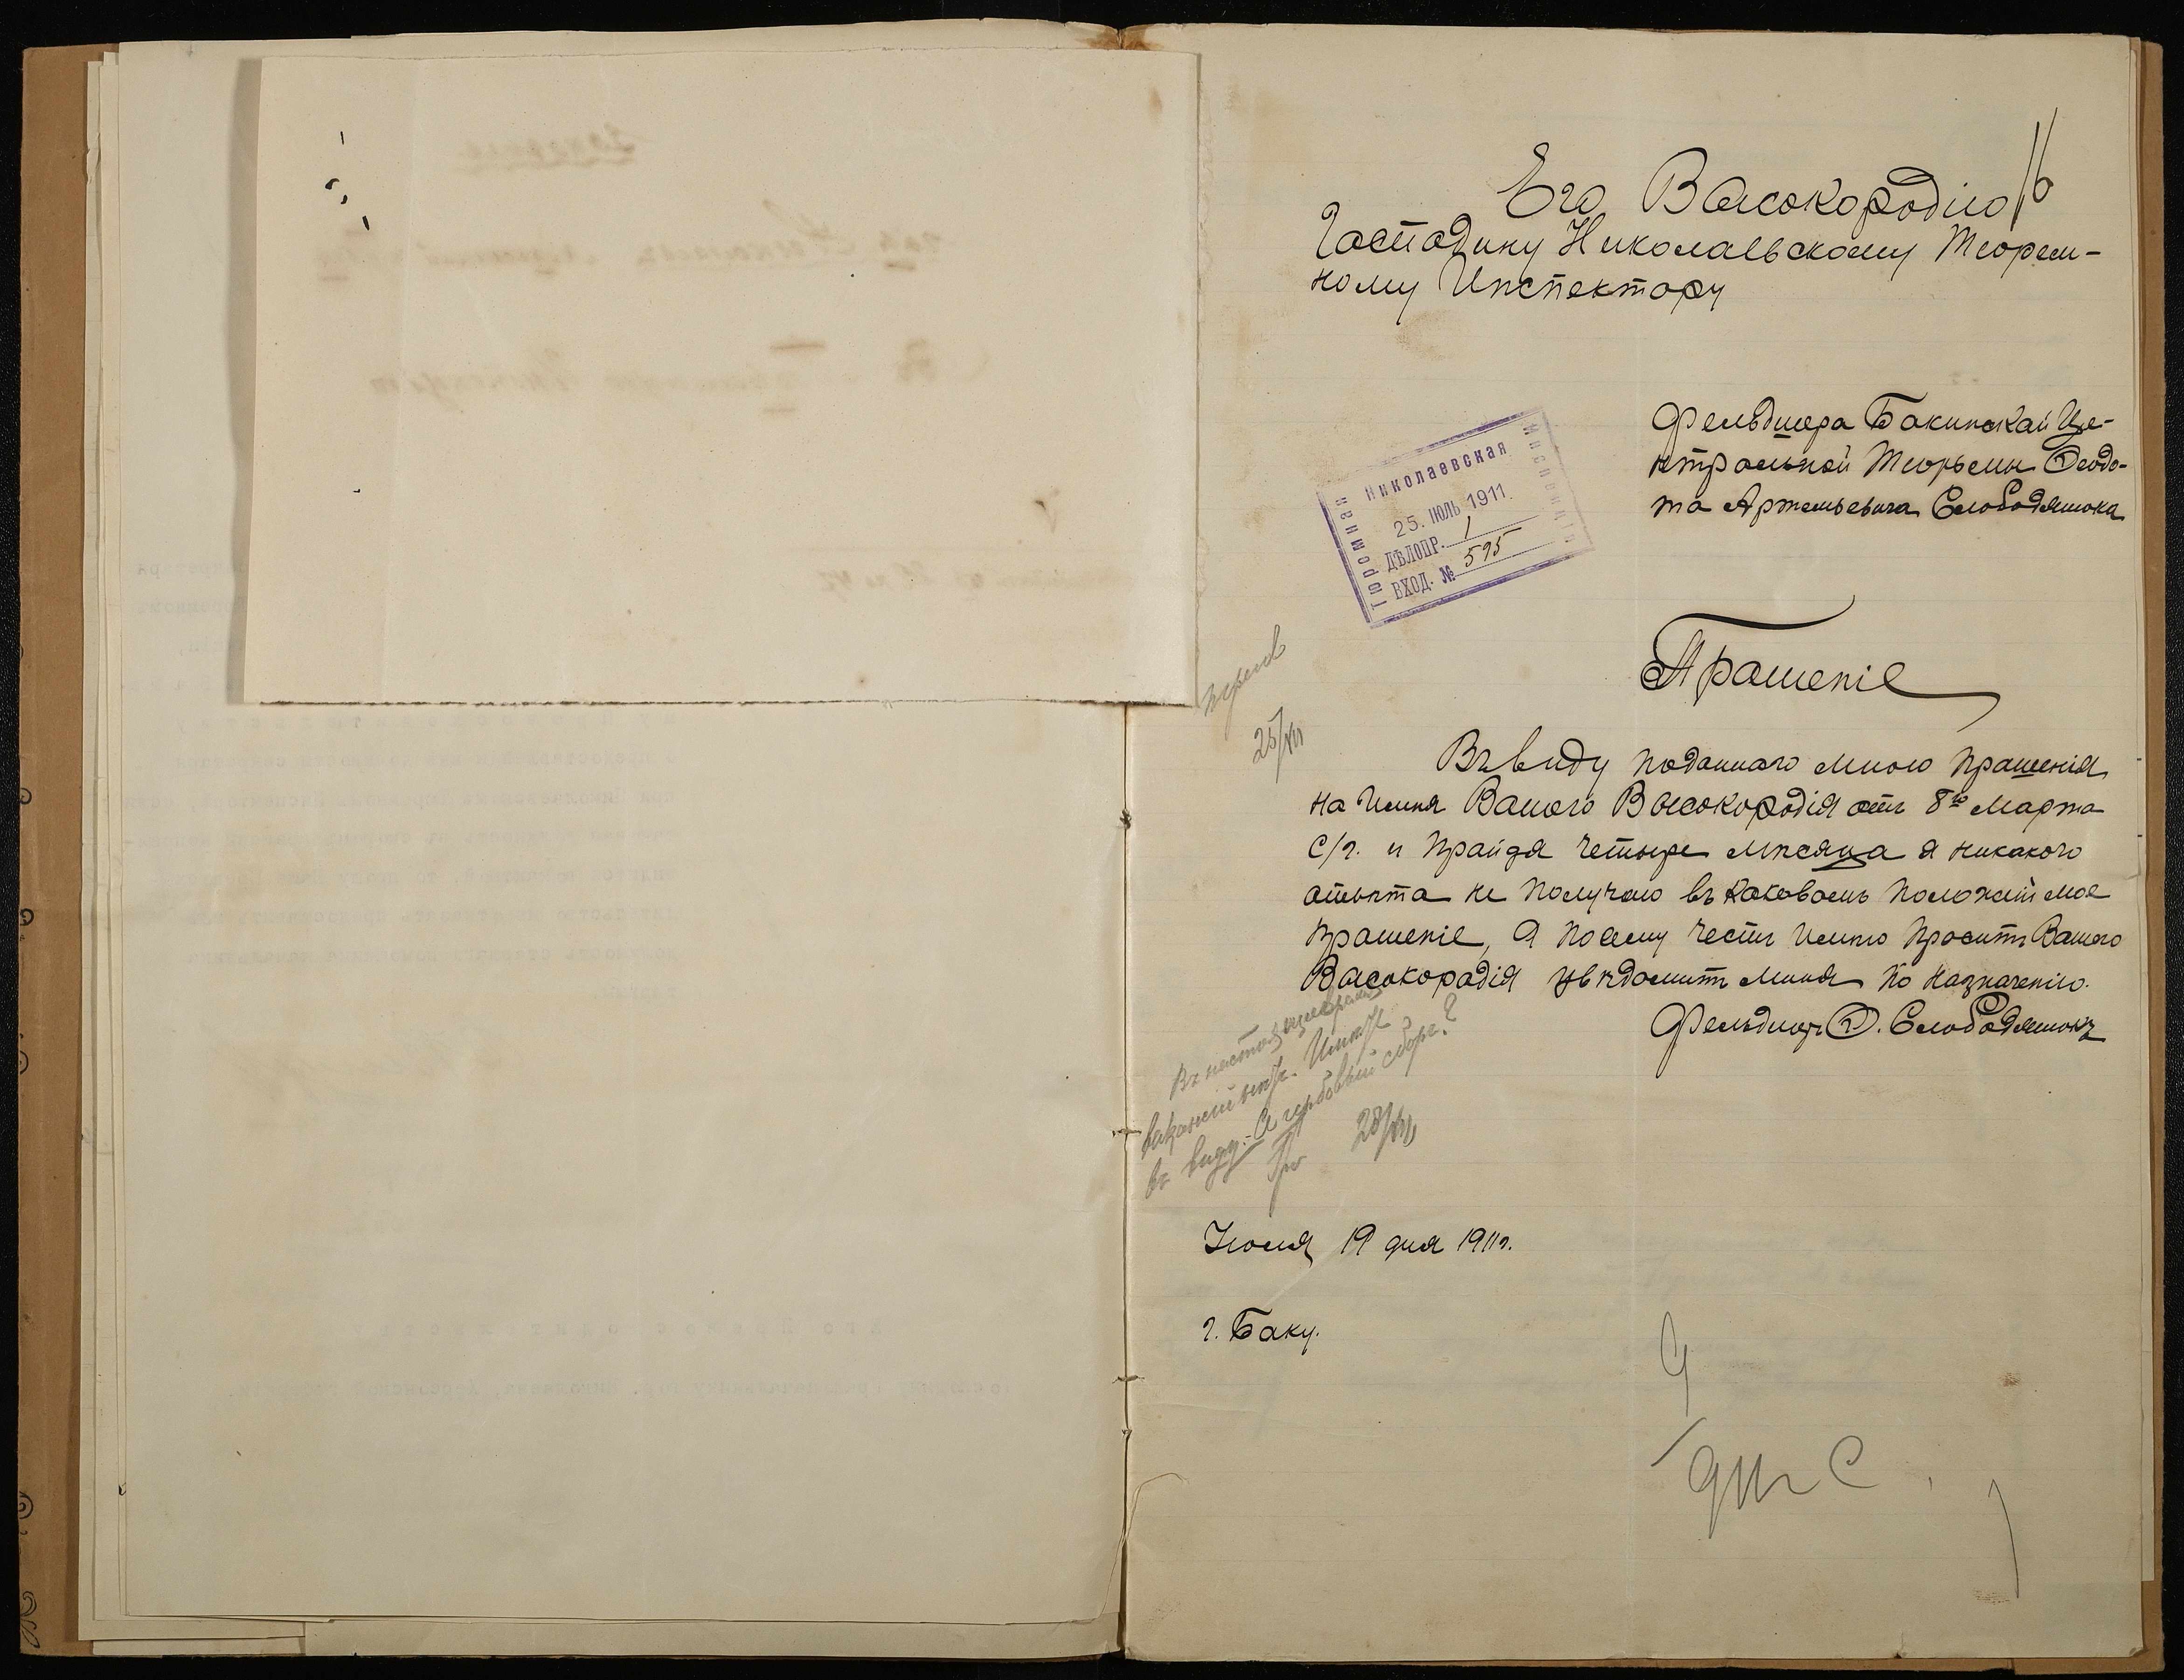 16
Его Высокородію
Господину Николаевскому Тюрем-
ному Инспектору
Фельдшера Бакинской Це-
нтральной Тюрьмы Феодо-
та Артемьевича Слободянюка
Николаевская
Тюремная
Инспекція
25. ІЮЛЬ 1911.
ДѢЛОПР. 1
ВХОД. № 595
Прашеніе
25/VII
Въ виду поданнаго мною прашенія
на Имия Вашого Высокородія отъ 8го Марта
С/г. и Пройдя четыре мѣсяца я никакого
атвѣта не Получаю въ каковомъ положеніи мое
Прашеніе, А Поэму честь Имѣю Просить Вашего
Высокорадія увѣдомить Миня По Назначенію.
Фельдшеръ Ф. Слободянюкъ
Въ настоящее время
вакансій нѣтъ. Имѣть
въ виду. - А гербовый сборъ?
28/VII
Июля 19 дня 1911г.
г. Баку.